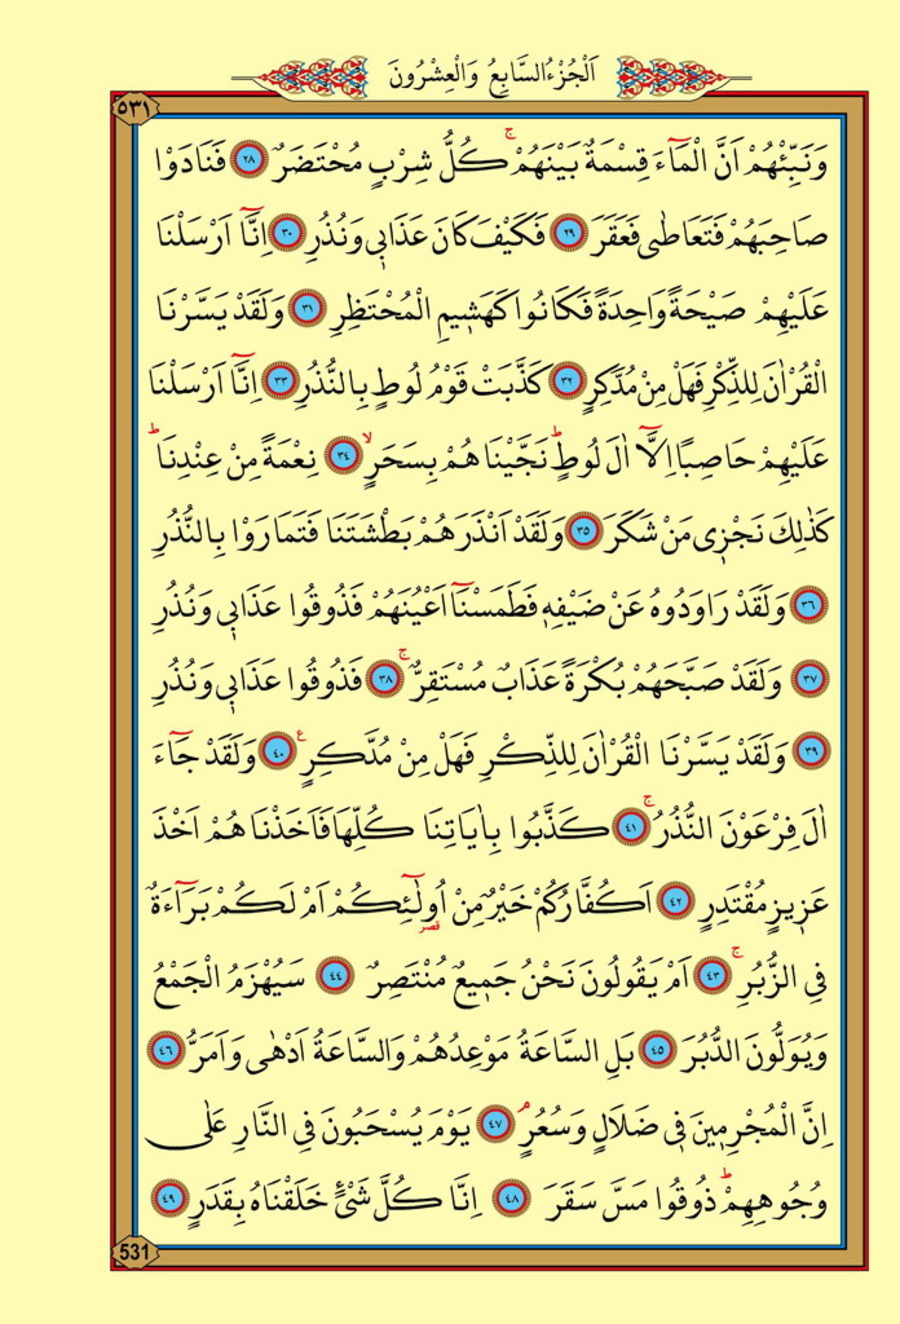 اَلْجُزْءُ السَّابِعُ وَالْعِشْرُونَ
٥٣١
وَنَبِّئْهُمْ اَنَّ الْمَٓاءَ قِسْمَةٌ بَيْنَهُمْۚ كُلُّ شِرْبٍ مُحْتَضَرٌ ﴿٢٨﴾ فَنَادَوْا
صَاحِبَهُمْ فَتَعَاطٰى فَعَقَرَ ﴿٢٩﴾ فَكَيْفَ كَانَ عَذَاب۪ي وَنُذُرِ ﴿٣٠﴾ اِنَّٓا اَرْسَلْنَا
عَلَيْهِمْ صَيْحَةً وَاحِدَةً فَكَانُوا كَهَش۪يمِ الْمُحْتَظِرِ ﴿٣١﴾ وَلَقَدْ يَسَّرْنَا
الْقُرْاٰنَ لِلذِّكْرِ فَهَلْ مِنْ مُدَّكِرٍ ﴿٣٢﴾ كَذَّبَتْ قَوْمُ لُوطٍ بِالنُّذُرِ ﴿٣٣﴾ اِنَّٓا اَرْسَلْنَا
عَلَيْهِمْ حَاصِبًا اِلَّٓا اٰلَ لُوطٍۜ نَجَّيْنَاهُمْ بِسَحَرٍۙ ﴿٣٤﴾ نِعْمَةً مِنْ عِنْدِنَاۜ
كَذٰلِكَ نَجْز۪ي مَنْ شَكَرَ ﴿٣٥﴾ وَلَقَدْ اَنْذَرَهُمْ بَطْشَتَنَا فَتَمَارَوْا بِالنُّذُرِ
﴿٣٦﴾ وَلَقَدْ رَاوَدُوهُ عَنْ ضَيْفِه۪ فَطَمَسْنَٓا اَعْيُنَهُمْ فَذُوقُوا عَذَاب۪ي وَنُذُرِ
﴿٣٧﴾ وَلَقَدْ صَبَّحَهُمْ بُكْرَةً عَذَابٌ مُسْتَقِرٌّۚ ﴿٣٨﴾ فَذُوقُوا عَذَاب۪ي وَنُذُرِ
﴿٣٩﴾ وَلَقَدْ يَسَّرْنَا الْقُرْاٰنَ لِلذِّكْرِ فَهَلْ مِنْ مُدَّكِرٍ ع ﴿٤٠﴾ وَلَقَدْ جَٓاءَ
اٰلَ فِرْعَوْنَ النُّذُرُۚ ﴿٤١﴾ كَذَّبُوا بِاٰيَاتِنَا كُلِّهَا فَاَخَذْنَاهُمْ اَخْذَ
عَز۪يزٍ مُقْتَدِرٍ ﴿٤٢﴾ اَكُفَّارُكُمْ خَيْرٌ مِنْ اُو۬لٰٓئِكُمْ اَمْ لَكُمْ بَرَٓاءَةٌ
قصر
فِي الزُّبُرِۚ ﴿٤٣﴾ اَمْ يَقُولُونَ نَحْنُ جَم۪يعٌ مُنْتَصِرٌ ﴿٤٤﴾ سَيُهْزَمُ الْجَمْعُ
وَيُوَلُّونَ الدُّبُرَ ﴿٤٥﴾ بَلِ السَّاعَةُ مَوْعِدُهُمْ وَالسَّاعَةُ اَدْهٰى وَاَمَرُّ ﴿٤٦﴾
اِنَّ الْمُجْرِم۪ينَ ف۪ي ضَلَالٍ وَسُعُرٍۢ ﴿٤٧﴾ يَوْمَ يُسْحَبُونَ فِي النَّارِ عَلٰى
وُجُوهِهِمْۜ ذُوقُوا مَسَّ سَقَرَ ﴿٤٨﴾ اِنَّا كُلَّ شَيْءٍ خَلَقْنَاهُ بِقَدَرٍ ﴿٤٩﴾
531